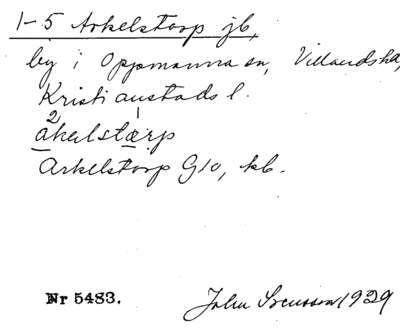 1-5 Arkelstorp jb,
by i Oppmanna sn, Villands hd,
Kristianstads l.
2 1
åkəlstærp
Arkelstorp G10, kb.
Nr 5483.
John Svensson 1929